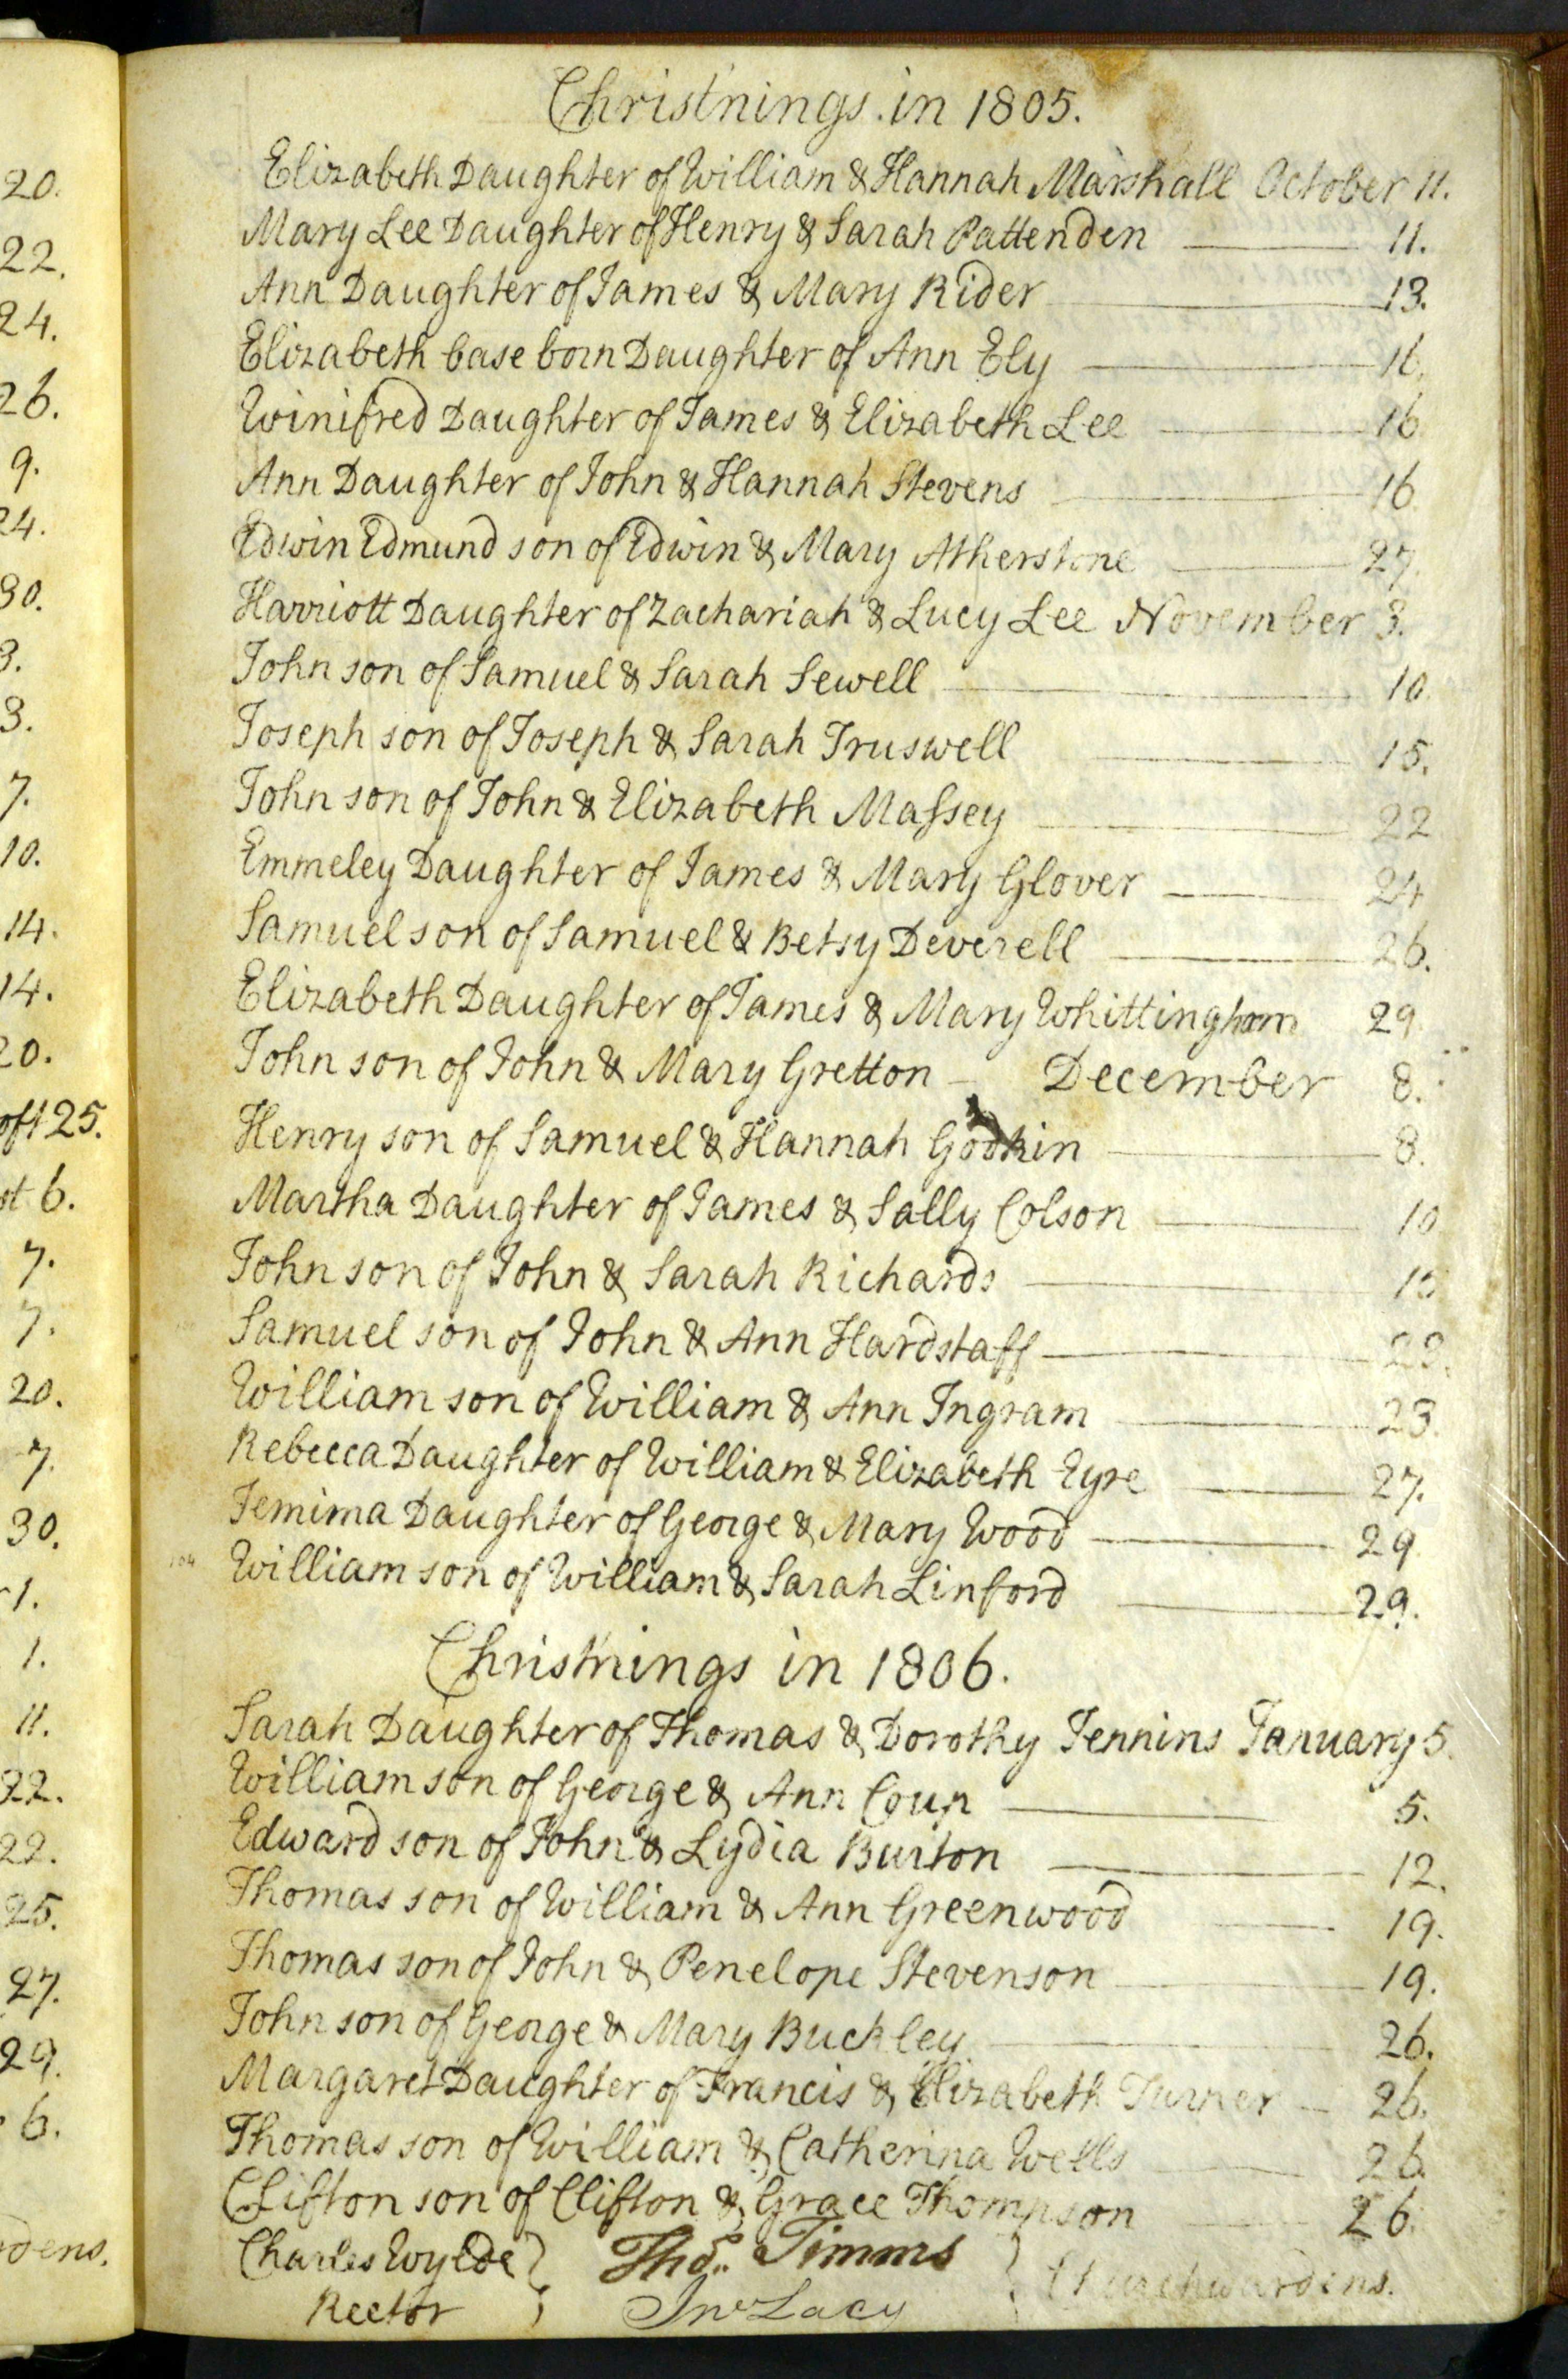 Christ'nings in 1805.
Elizabeth Daughter of William & Hannah Marshall October 11.
Mary Lee Daughter of Henry & Sarah Pattenden 11.
Ann Daughter of James & Mary Rider 13.
Elizabeth base born Daughter of Ann Ely 16.
Winifred Daughter of James & Elizabeth Lee 16
Ann Daughter of John & Hannah Stevens 16
Edwin Edmund son of Edwin & Mary Atherstone 27.
Harriott Daughter of Zachariah & Lucy Lee November 3.
John son of Samuel & Sarah Sewell 10.
Joseph son of Joseph & Sarah Truswell 15.
John son of John & Elizabeth Maſsey 22
Emmeley Daughter of James & Mary Glover 24
Samuel son of Samuel & Betsy Deverell 26.
Elizabeth Daughter of James & Mary Whittingham 29
John son of John & Mary Gretton December 8.
Henry son of Samuel & Hannah Godkin 8.
Martha Daughter of James & Sally Colson 10
John son of John & Sarah Richards 15
Samuel son of John & Ann Hardstaff 23.
William son of William & Ann Ingram 23.
Rebecca Daughter of William & Elizabeth Eyre 27.
Jemima Daughter of George & Mary Wood 29
William son of William & Sarah Linford 29.
Christ'nings in 1806.
Sarah Daughter of Thomas & Dorothy Jennins January 5.
William son of George & Ann Coup 5.
Edward son of John & Lydia Burton 12.
Thomas son of William & Ann Greenwood 19.
Thomas son of John & Penelope Stevenson 19.
John son of George & Mary Buckley 26.
Margaret Daughter of Francis & Elizabeth Turner 26.
Thomas son of William & Catherina Wells 26
Clifton son of Clifton & Grace Thompson 26.
Charles Wylde } Thos. Timms }
Rector } Jno Lacy } Churchwardens.
20.
22.
24.
26.
9.
24.
30.
3.
3.
7.
10.
14.
14.
20.
25.
6.
7.
7.
20.
7.
30.
1.
1.
11.
22.
22.
25.
27.
29.
6.
dens.